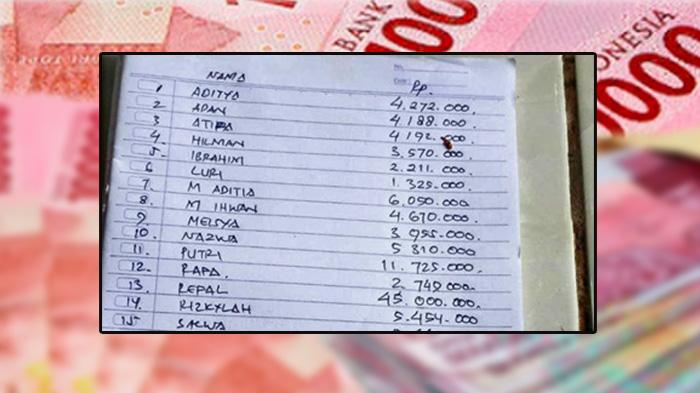 BANK
100
ONESIA
000
NAMA Rp.
1 ADITYA 4.272.000,
2 ADAN 4.188.000,
3 4.192.000,
4. HILMAN 3.570.000,
5. IBRAHIM 2.211.000,
6 LURI 1.325.000,
7. M ADITIA 6.050.000
8. M IHWAN 4.670.000,
9 3.955.000,
10. NAZWA 5 310.000
11. PUTRI 11.725.000,
12. RAPA. 2 749.000
13. REPAL 45.000.000,
14. RIZKYLAH 5.454.000
15 SALWA